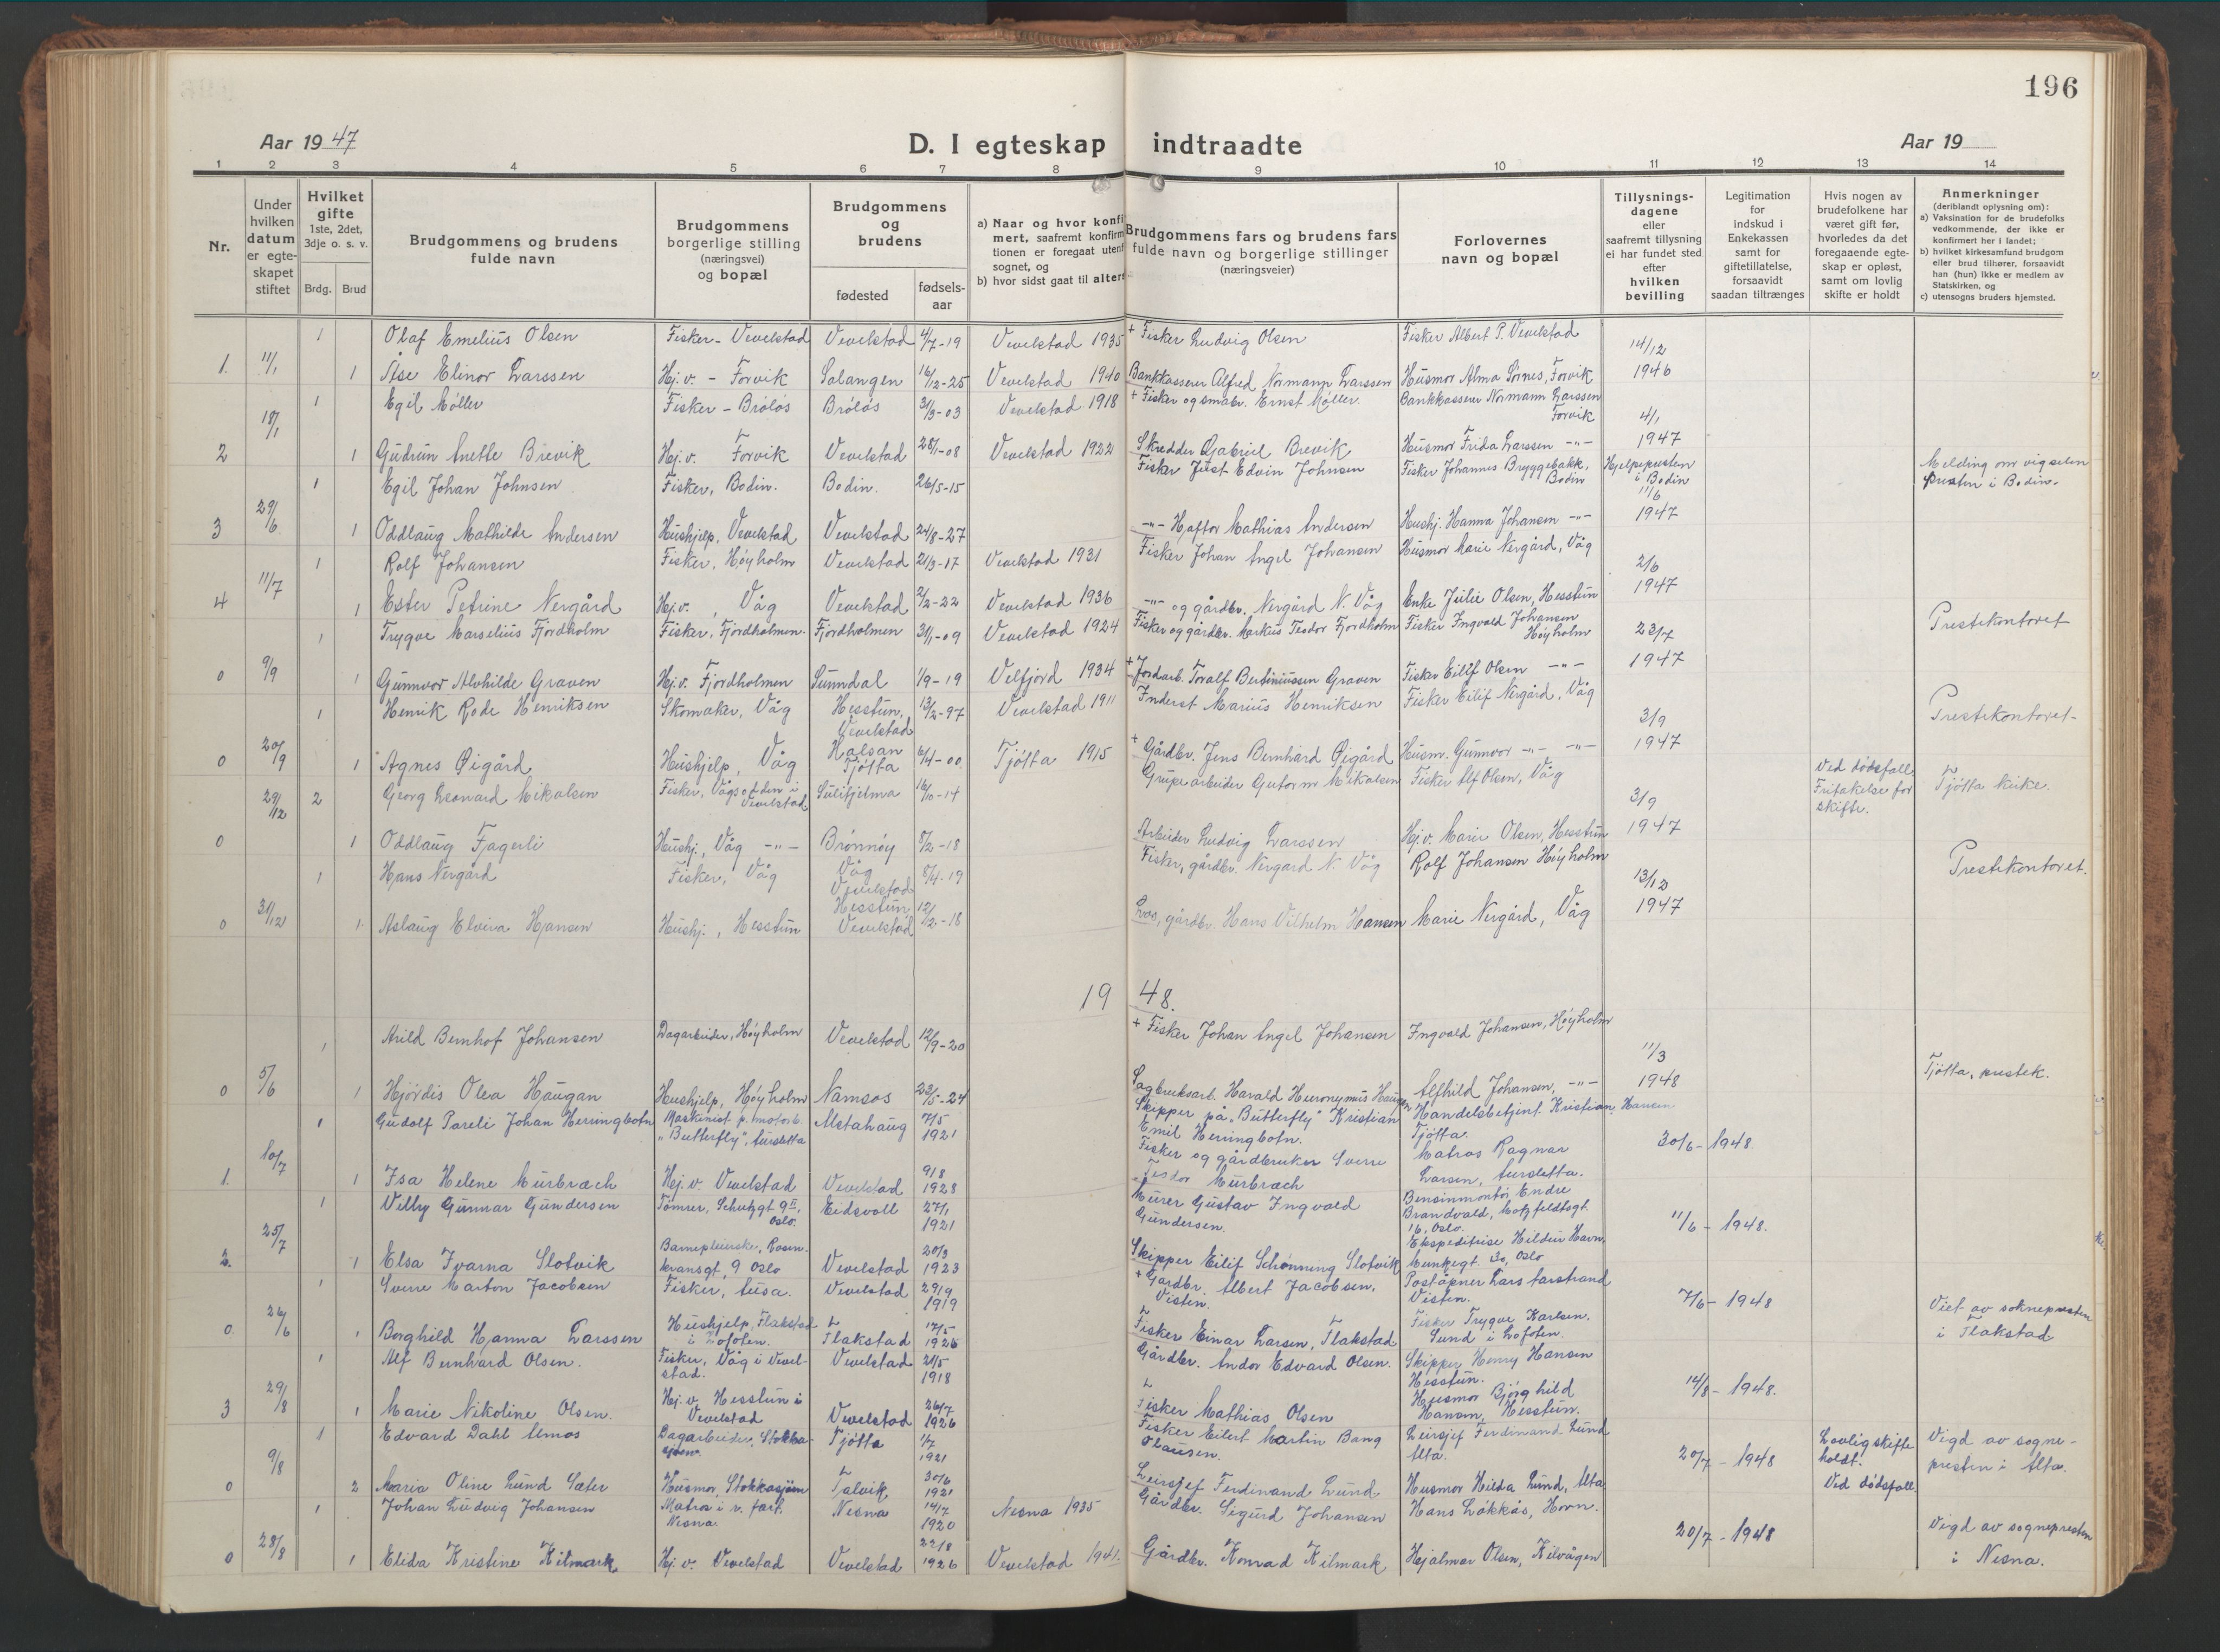 196
Aar 1947
D. I egteskap indtraadte
Aar 19
1 2 3 4 5 6 7 8 9 10 11 12 13 14
Nr.
Under hvilken datum er egte-skapet stiftet
Hvilket gifte 1ste, 2det, 3dje o. s. v.
Brdg. Brud
Brudgommens og brudens fulde navn
Brudgommens borgerlige stilling (næringsvei) og bopæl
Brudgommens og brudens
fødested
fødsels-aar
a) Naar og hvor konfi
mert, saafremt konfirm
tionen er foregaat utenf
sognet, og
b) hvor sidst gaat til alters
Brudgommens fars og brudens fars fulde navn og borgerlige stillinger (næringsveier)
Forlovernes navn og bopæl
Tillysnings-dagene eller saafremt tillysning ei har fundet sted efter hvilken bevilling
Legitimation for indskud i Enkekassen samt for giftetillatelse, forsaavidt saadan tiltrænges
Hvis nogen av brudefolkene har været gift før, hvorledes da det foregaaende egte-skap er opløst, samt om lovlig skifte er holdt
Anmerkninger
(deriblandt oplysning om):
a) Vaksination for de brudefolks vedkommende, der ikke er konfirmert her i landet;
b) hvilket kirkesamfund brudgom eller brud tilhører, forsaavidt han (hun) ikke er medlem av Statskirken, og
c) utensogns bruders hjemsted.
1 Olaf Emelius Olsen Fisker - Vevelstad Vevelstad 4/7-19 Vevelstad 1935 + Fisker Ludvig Olsen Fisker Albert P. Vevelstad 14/12
1. 11/1 1 Åse Elinor Larssen Hj.v. - Forvik Salangen 16/12-25 Vevelstad 1940 Bankkasserer Alfred Normann Larssen Husmor Alma Sørnes, Forvik 1946
1 Egil Møller Fisker - Brøløs Brøløs 31/3-03 Vevelstad 1918 + Fisker og småbr. Ernst Møller. Bankkasserer Normann Larssen Forvik 4/1
2 18/1 1 Gudrun Anette Brevik Hj.v. Forvik Vevelstad 28/1-08 Vevelstad 1922 Skredder Gabriel Brevik Husmor Frida Larssen -"- 1947
1 Egil Johan Johnsen Fisker, Bodin. Bodin. 26/5-15 Fisker Just Edvin Johnsen Fisker Johannes Bryggebakk, Bodin Hjelpepresten i Bodin 11/6 Melding om vigselen presten i Bodin.
3 29/6 1 Oddlaug Mathilde Andersen Hushjelp, Vevelstad Vevelstad 24/8-27 -"- Haftor Mathias Andersen Hushj. Hanna Johansen -"- 1947
1 Rolf Johansen Fisker, Høyholm Vevelstad 21/3-17 Vevelstad 1931 Fisker Johan Angel Johansen Husmor Marie Nergård, Våg 2/6
4 11/7 1 Ester Petrine Nergård Hj.v., Våg Vevelstad 2/2-22 Vevelstad 1936 -"- og gårdbr. Nergård N. Våg Enke Julie Olsen, Hesstun 1947
1 Trygve Marselius Fjordholm Fisker, Fjordholmen. Fjordholmen 31/1-09 Vevelstad 1924 Fisker og gårdbr. Markus Teodor Fjordholm Fisker Ingvald Johansen Høyholm 23/7 Prestekontoret
0 9/9 1 Gunnvor Alvhilde Graven Hj.v. Fjordholmen Sunndal 1/9-19 Velfjord 1934 + Jordarb. Toralf Bertiniussen Graven Fisker Eilif Olsen -"- 1947
1 Henrik Rode Henriksen Skomaker, Våg Hesstun, Vevelstad 13/2-97 Vevelstad 1911 Inderst Marius Henriksen Fisker Eilif Nergård, Våg 3/9 Prestekontoret-
0 20/9 1 Agnes Øigård Hushjelp, Våg Halsan Tjøtta 6/4-00 Tjøtta 1915 + Gårdbr. Jens Bernhard Øigård Husm. Gunnvor -"- -"- 1947
2 Georg Leonard Mikalsen Fisker, Vågsodden i Vevelstad Sulitjelma 16/10-14 Grupearbeider Gutorm Mikalsen Fisker Alf Olsen, Våg 3/9 Ved dødsfall. Fritakelse for skifte. Tjøtta kirke.
0 29/12 1 Oddlaug Fagerli Hushj., Våg -"- Brønnøy 8/2-18 Arbeider Ludvig Larssen Hj.v. Marie Olsen, Hesstun 1947
1 Hans Nergård Fisker, Våg Våg Vevelstad 8/4-19 Fisker, gårdbr. Nergård N. Våg Rolf Johansen Høyholm 13/12 Prestekontoret.
0 31/12 1 Aslaug Elvira Hansen Hushj., Hesstun Hesstun Vevelstad 12/12-18 Los, gårdbr. Hans Vilhelm Hansen Marie Nergård, Våg 1947
1948.
1 Arild Bernhof Johansen Dagarbeider, Høyholm Vevelstad 12/9-20 + Fisker Johan Angel Johansen Ingvald Johansen, Høyholm 11/3
0 5/6 1 Hjørdis Olea Haugan Hushjelp, Høyholm Namsos 23/5-24 Sagbruksarb. Harald Hieronymus Haugan Alfhild Johansen, -"- 1948 Tjøtta, prestek.
1 Gudolf Pareli Johan Herringbotn Maskinist p. motorb. "Butterfly", Aursletta Alstahaug 7/5 1921 Skipper på "Butterfly" Kristian Emil Herringbotn. Handelsbetjent Kristian Hansen Tjøtta. 30/6-1948.
1. 10/7 1 Isa Helene Murbræch Hj.v. Vevelstad Vevelstad 9/8 1928 Fisker og gårdbruker Sverre Teodor Murbræch Matros Ragnar Larsen, Aursletta.
1 Villy Gunnar Gundersen Tømrer, Schultzgt 9 II, Oslo. Eidsvoll 27/1 1921 Murer Gustav Ingvald Gundersen. Bensinmontør Endre Brandvald, Motzfeldtsgt. 16, Oslo. 11/6-1948.
2. 25/7 1 Elsa Ivarna Slotvik Barnepleierske, Rosenkransgt. 9 Oslo Vevelstad 20/3 1923 Skipper Eilif Schønning Slotvik Ekspeditrise Hildur Havn, Munkegt. 30, Oslo
1 Sverre Marton Jacobsen Fisker, Ausa. Vevelstad 29/9 1919 + Gårdbr. Albert Jacobsen, Visten. Poståpner Lars Aarstrand Visten. 7/6-1948 Viet av sokneprесten i Flakstad
0 26/6 1 Borghild Hanna Larssen Hushjelp, Flakstad i Lofoten. Flakstad 17/5 1926 Fisker Einar Larsen, Flakstad Fisker Trygve Karlsen. Sund i Lofoten.
1 Alf Bernhard Olsen. Fisker, Våg i Vevelstad. Vevelstad 21/5 1918 Gårdbr. Andor Edvard Olsen. Skipper Henry Hansen Hesstun. 14/8-1948.
3 29/8 1 Marie Nikoline Olsen. Hj.v. Hesstun i Vevelstad Vevelstad 26/7 1926 Fisker Mathias Olsen Husmor Bjørghild Hansen, Hesstun.
1 Edvard Dahl Almos Dagarbeider, Stokkasjøen Tjøtta 1/7 1921 Fisker Eilert Martin Bang Olausen. Leirsjef Ferdinand Lund Alta. 20/7-1948 Lovlig skifte holdt. Vigd av sognepresten i Alta.
0 9/8 2 Maria Oline Lund Sæter Husmor, Stokkasjøen Talvik 30/6 1921 Leirsjef Ferdinand Lund Husmor Hilda Lund, Alta Ved dødsfall
1 Johan Ludvig Johansen Matros i v. fart. Nesna. Nesna 14/7 1920 Nesna 1935 Gårdbr. Sigurd Johansen Hans Løkkås, Horn. 20/7-1948 Vigd av sognepresten i Nesna.
0 28/8 1 Elida Kristine Kilmark Hj.v. Vevelstad Vevelstad 22/8 1926 Vevelstad 1941. Gårdbr. Konrad Kilmark Hjalmar Olsen, Kilvågen